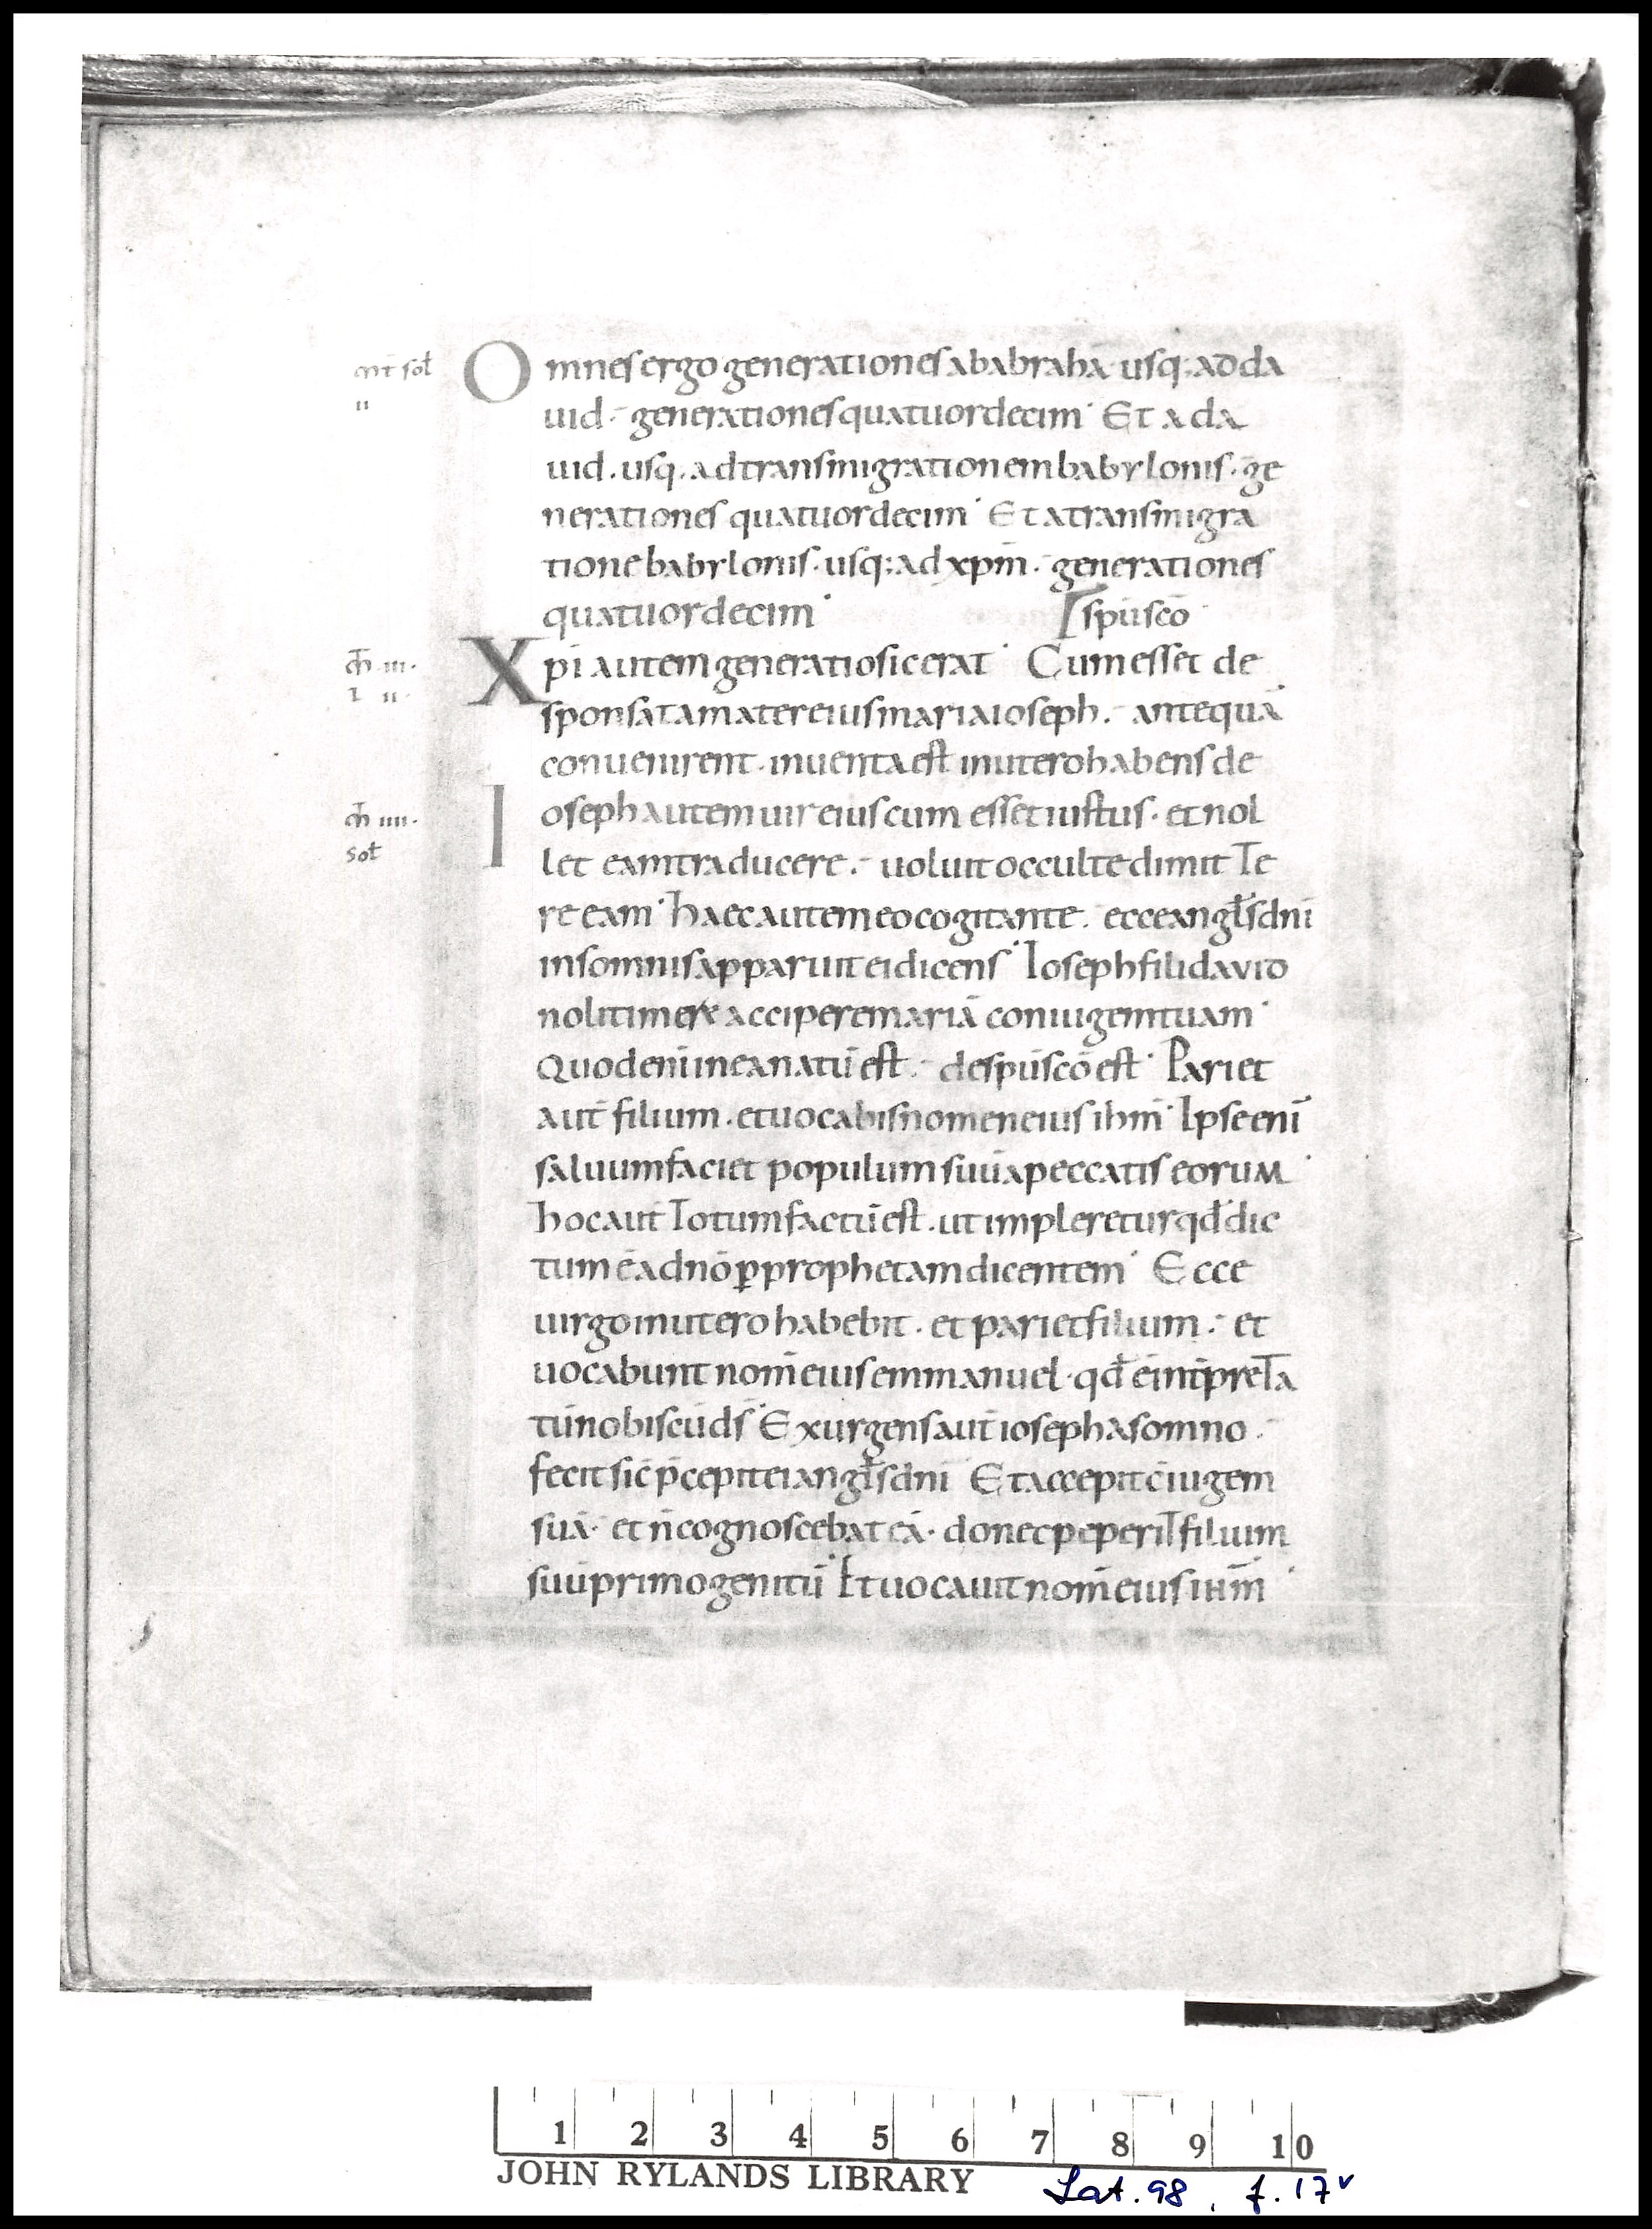 mt sol̄
II
Omnes ergo generationes ab abrahā usq; ad da
uid. generationes quatuordecim. Et a da
uid. usq. ad transmigrationem babylonis. ge
nerationes quatuordecim. Et a transmigra
tione babylonis. usq; ad xpm̄. generationes
quatuordecim.
sp̄u scō
c̄h. III.
I II.
Xpi autem generatio sic erat. Cum esset de
sponsata mater eius maria ioseph. antequā
conuenirent. inuenta est in utero habens de
c̄h IIII.
sol̄
Ioseph autem uir eius cum esset iustus. et nol
let eam traducere. uoluit occulte dimitte
re eam. haec autem eo cogitante. ecce angl̄s dn̄i
in somnis apparuit ei dicens. Ioseph fili dauid
noli timere accipere mariā coniugem tuam.
Quod enī in ea natū est. de sp̄u scō est. Pariet
aut̄ filium. et uocabis nomen eius ihm̄. Ipse enī
saluum faciet populum suū a peccatis eorum.
hoc aut̄ totum factū est. ut impleretur qd̄ dic
tum ē a dn̄o p̱ prophetam dicentem. Ecce
uirgo in utero habebit. et pariet filium. et
uocabunt nom̄ eius emmanuel. qd̄ ē int̄preta
tū nobiscū ds̄. Exurgens aut̄ ioseph a somno.
fecit sic̄ p̄cepit ei angl̄s dn̄i Et accepit c̄iugem
suā. et n̄ cognoscebat eā. donec peperit filium
suū primogenitū. Et uocauit nom̄ eius ihm̄.
1 2 3 4 5 6 7 8 9 10
JOHN RYLANDS LIBRARY
Lat. 98, f. 17v